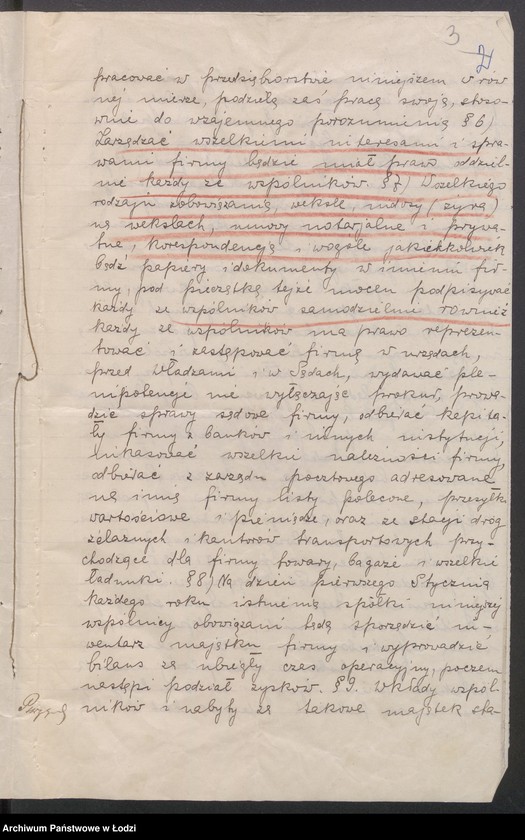 3
21
pracować w przedsiębiorstwie niniejszem w rów-
nej mierze, podzielą zaś pracę swoją, stoso-
wnie do wzajemnego porozumienia § 6)
Zarządzać wszelkiemi interesami i spra-
wami firmy będzie miał prawo oddziel-
nie każdy ze wspólników. § 7) Wszelkiego
rodzaju zobowiązania, weksle, indosy (żyra)
na wekslach, umowy notarjalne i prywa-
tne, korespondencja i wogóle jakiekkolwiek
bądź papiery i dokumenty w imieniu fir-
my, pod pieczątką tejże mocen podpisywać
każdy ze wspólników samodzielnie również
każdy ze wspólników ma prawo reprezen-
tować i zastępować firmę w urzędach,
przed Władzami i w Sądach, wydawać ple-
nipotencje nie wyłączając prokur, prowa-
dzić sprawy sądowe firmy, odbierać kapita-
ły firmy z banków i innych instytucji,
inkasować wszelkie należności firmy,
odbierać z zarządu pocztowego adresowane
na imię firmy listy polecone, przesyłki
wartościowe i pieniądze, oraz ze stacji dróg
żelaznych i kantorów transportowych przy-
chodzące dla firmy towary, bagaże i wszelkie
ładunki. § 8) Na dzień pierwszego Stycznia
każdego roku istnienia spółki niniejszej
wspólnicy obowiązani będą sporządzić in-
wentarz majątku firmy i wyprowadzić
bilans za ubiegły czas operacyjny, poczem
nastąpi podział zysków. § 9. Wkłady wspól-
ników i nabyty za takowe majątek sta-
Archiwum Państwowe w Łodzi